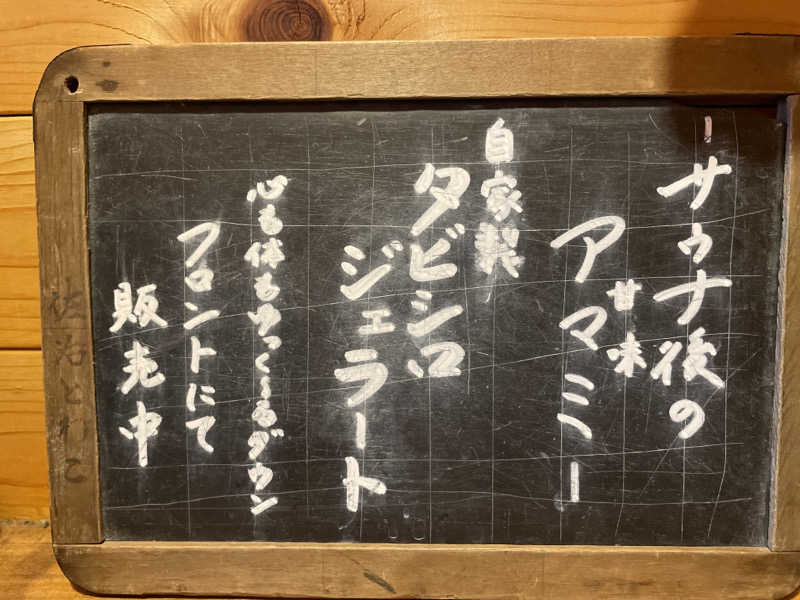 ーサウナ後の
甘味
アマミー
自家製
タビシロ
ジェラート
心も体もゆっくーるダウン
フロントにて
販売中